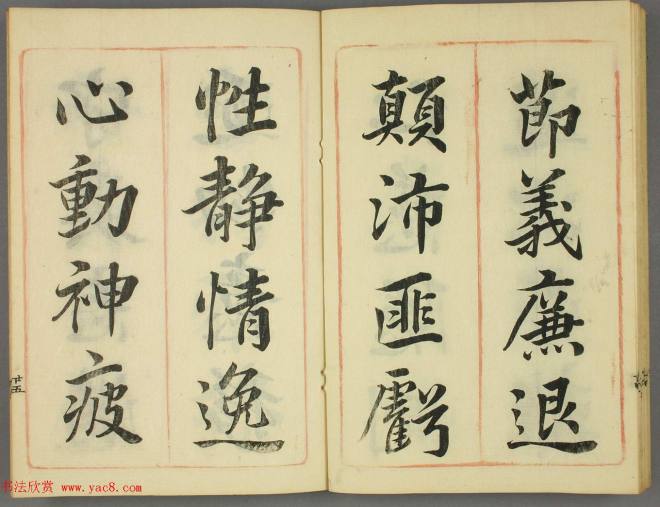 節義廉退
顛沛匪虧
性静情逸
心動神疲
廿五
书法欣赏 www.yac8.com